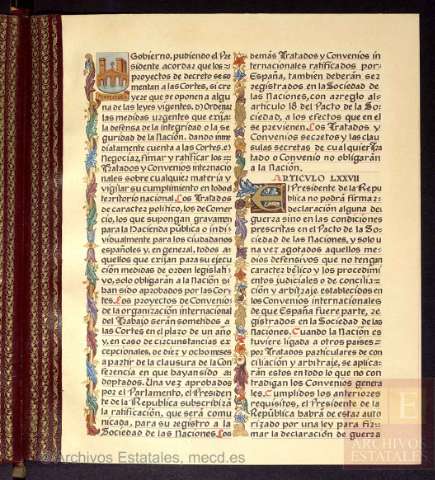 Gobierno, pudiendo el Pre
sidente acordar que los
proyectos de decreto se so
metan a las Cortes, si cre
yere que se oponen a algu
na de las leyes vigentes. d) Ordenar
las medidas urgentes que exija
la defensa de la integridad o la se
guridad de la Nación, dando inme
diatamente cuenta a las Cortes. e)
negociar, firmar y ratificar los
Tratados y Convenios internacio
nales sobre cualquier materia y
vigilar su cumplimiento en todo el
territorio nacional. Los Tratados
de caracter político, los de Comer
cio, los que supongan gravamen
para la Hacienda pública o indi
vidualmente para los ciudadanos
españoles y, en general, todos a
quellos que exijan para su ejecu
ción medidas de orden legislati
vo, solo obligarán a la Nación si
han sido aprobados por las Cor
tes. Los proyectos de Convenio
de la organización internacional
del Trabajo serán sometidos a
las Cortes en el plazo de un año
y, en caso de circunstancias ex
cepcionales, de diez y ocho meses
a partir de la clausura de la Con
ferencia en que hayan sido a
doptados. Una vez aprobados
por el Parlamento, el Presiden
te de la Republica subscribirá
la ratificación, que será comu
nicada, para su registro a la
Sociedad de las Naciones. Los
demás Tratados y Convenios in
ternacionales ratificados por
España, tambien deberán ser
registrados en la Sociedad de
las Naciones, con arreglo al
artículo 18 del Pacto de la So
ciedad, a los efectos que en el
se previenen. Los Tratados y
Convenios secretos y las clau
sulas secretas de cualquier Tra
tado o Convenio no obligarán
a la Nación.
ARTICULO LXXVII
El Presidente de la Repu
blica no podrá firmar
declaración alguna de
guerra sino en las condiciones
prescritas en el Pacto de la So
ciedad de las Naciones, y solo u
na vez agotados aquellos me
dios defensivos que no tengan
caracter bélico y los procedimi
entos judiciales o de concilia
ción y arbitraje establecidos en
los Convenios internacionales
de que España fuere parte, re
gistrados en la Sociedad de las
Naciones. Cuando la Nación es
tuviere ligada a otros países
por Tratados particulares de con
ciliación y arbitraje, se aplica
rán estos en todo lo que no con
tradigan los Convenios genera
les. Cumplidos los anteriores
requisitos, el Presidente de la
República habrá de estar auto
rizado por una ley para fir
mar la declaración de guerra
ARCHIVOS
ESTATALES
© Archivos Estatales, mecd.es